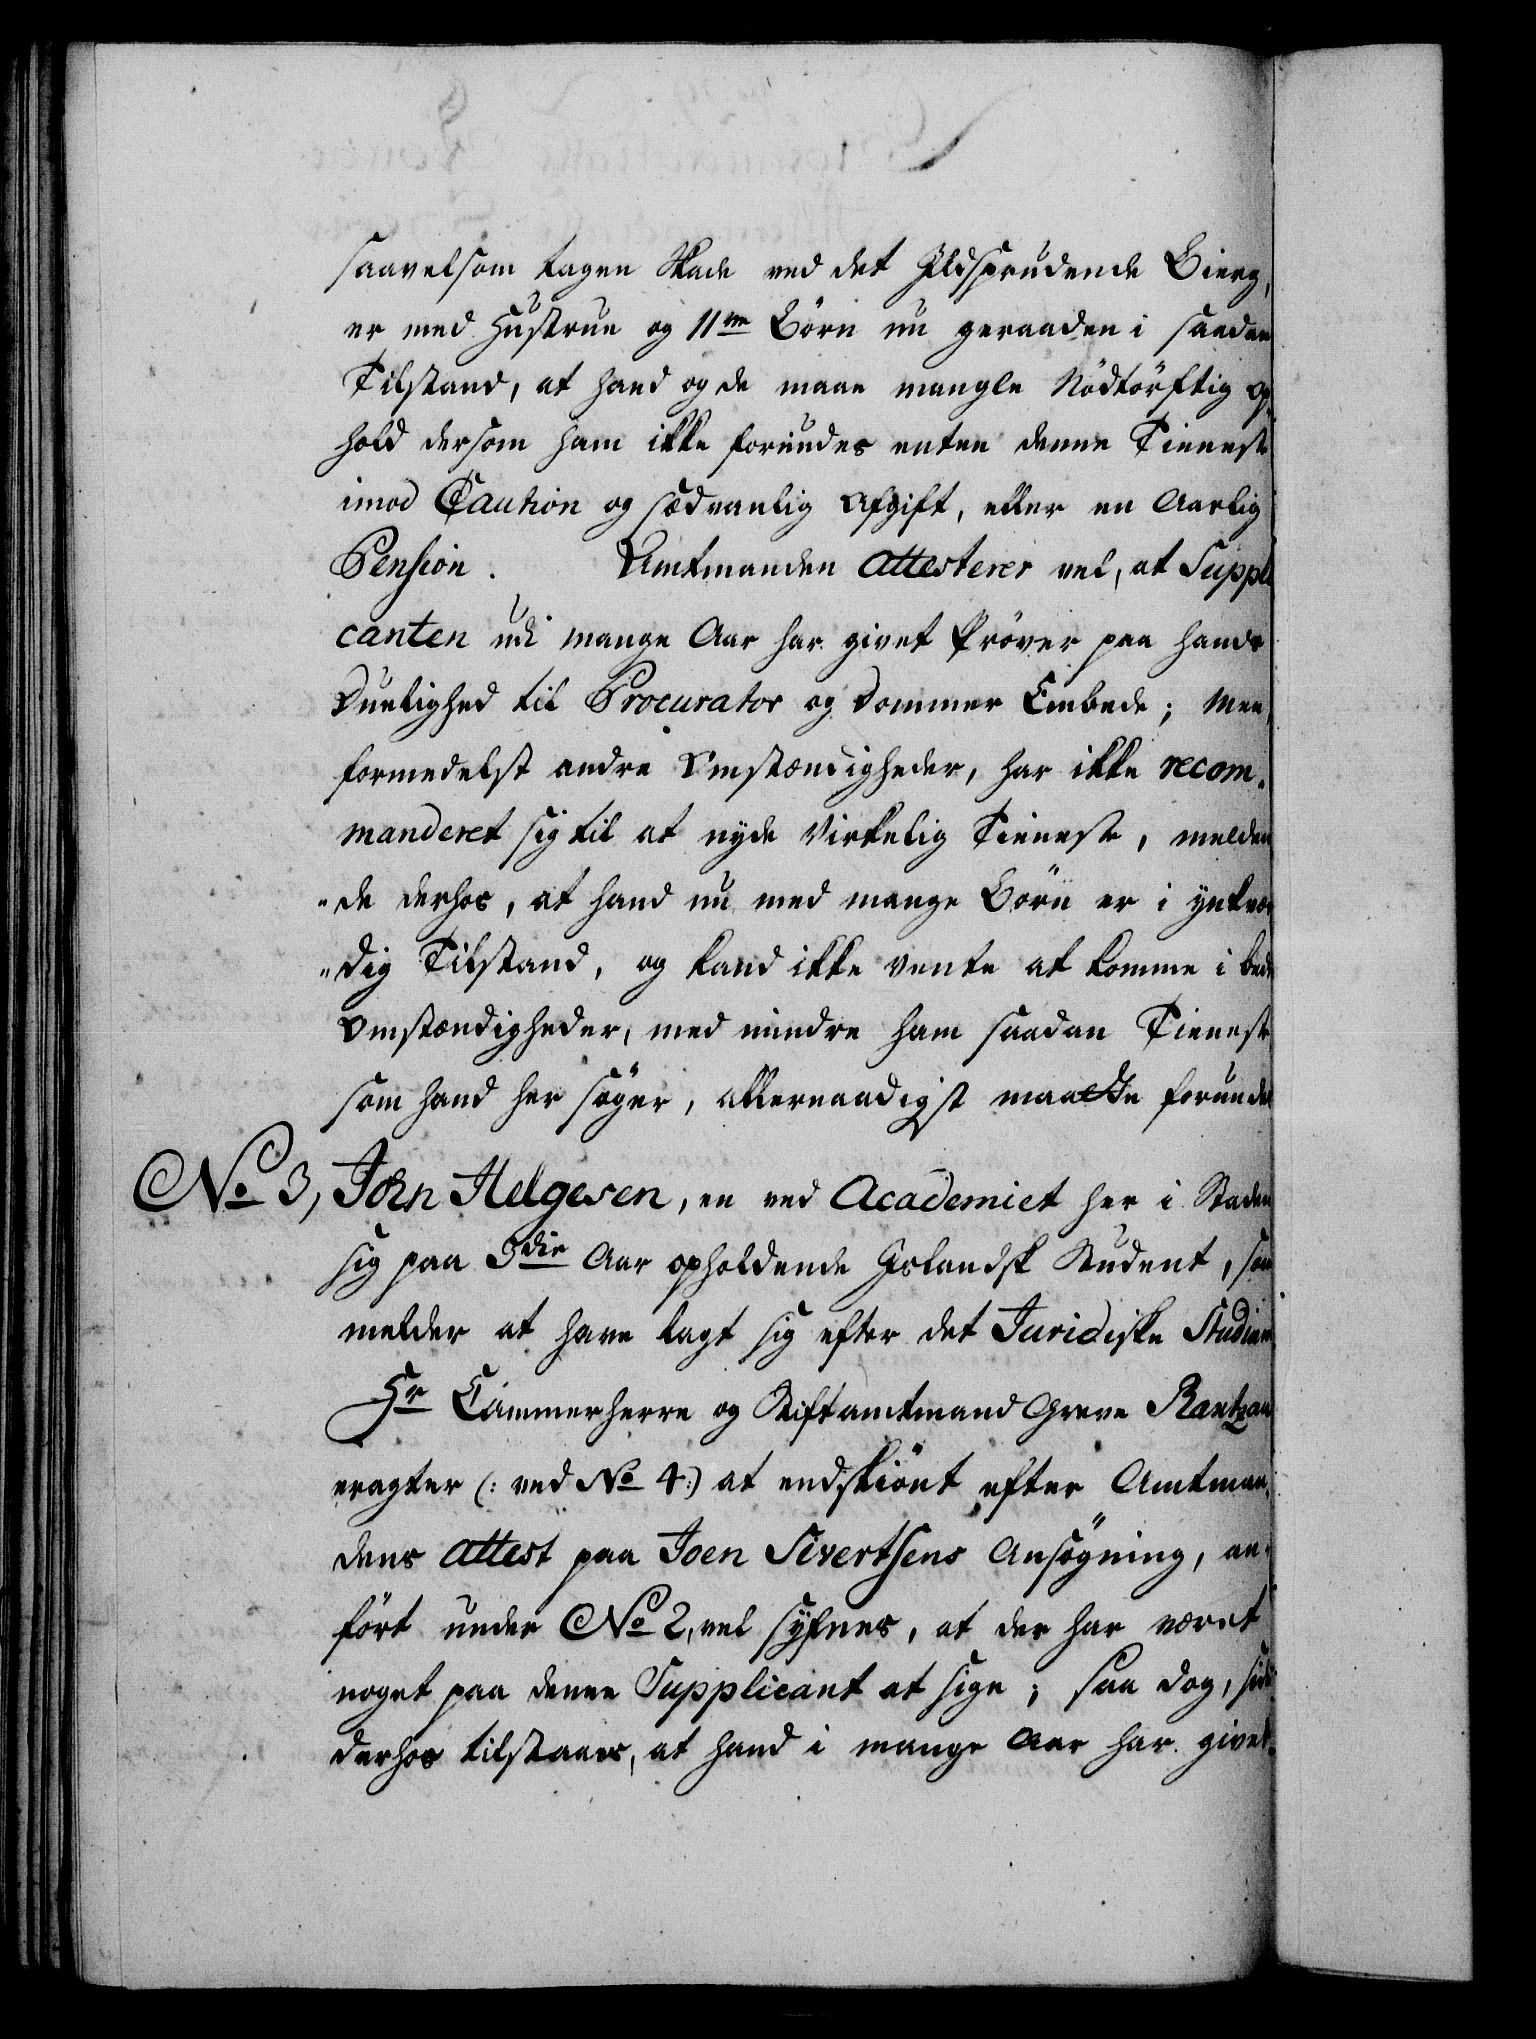 saavelsom tagen Skade ved det Ildsprudende Bierg,
er med Hustrue og 11ve Börn nu geraaden i saadan
Tilstand, at hand og de maae mangle Nödtörftig Op¬
hold dersom ham ikke forundes enten denne Tieneste
imod Caution og sædvanlig Afgift, eller en Aarlig
Pension. Amtmanden attesterer vel, at Suppli
canten udi mange Aar har givet Pröver paa hands
Duelighed til Procurator og Dommer Embede; Men
formedelst andre Omstændigheder, har ikke recom¬
manderet sig til at nyde Virkelig Tieneste, melden
de derhos, at hand nu med mange Börn er i ynkvær
dig Tilstand, og kand ikke vente at komme i bedre
Omstændigheder, med mindre ham saadan Tieneste
som hand her söger, allernaadigst maatte forundes
No 3, Jörn Helgesen, en ved Academiet her i Staden
sig paa 3die Aar opholdende Islandsk Student, som
melder at have lagt sig efter det Juridiske Studium
Hr Cammerherre og Stiftamtmand Greve Rantzau
eragter (: ved No 4:) at endskiönt efter Amtman¬
dens attest paa Joen Sivertsens Ansögning, an¬
fört under No 2, vel syfnes, at der har været
noget paa denne Supplicant at sige; saa dog, siden
derhos tilstaaes, at hand i mange Aar har givet